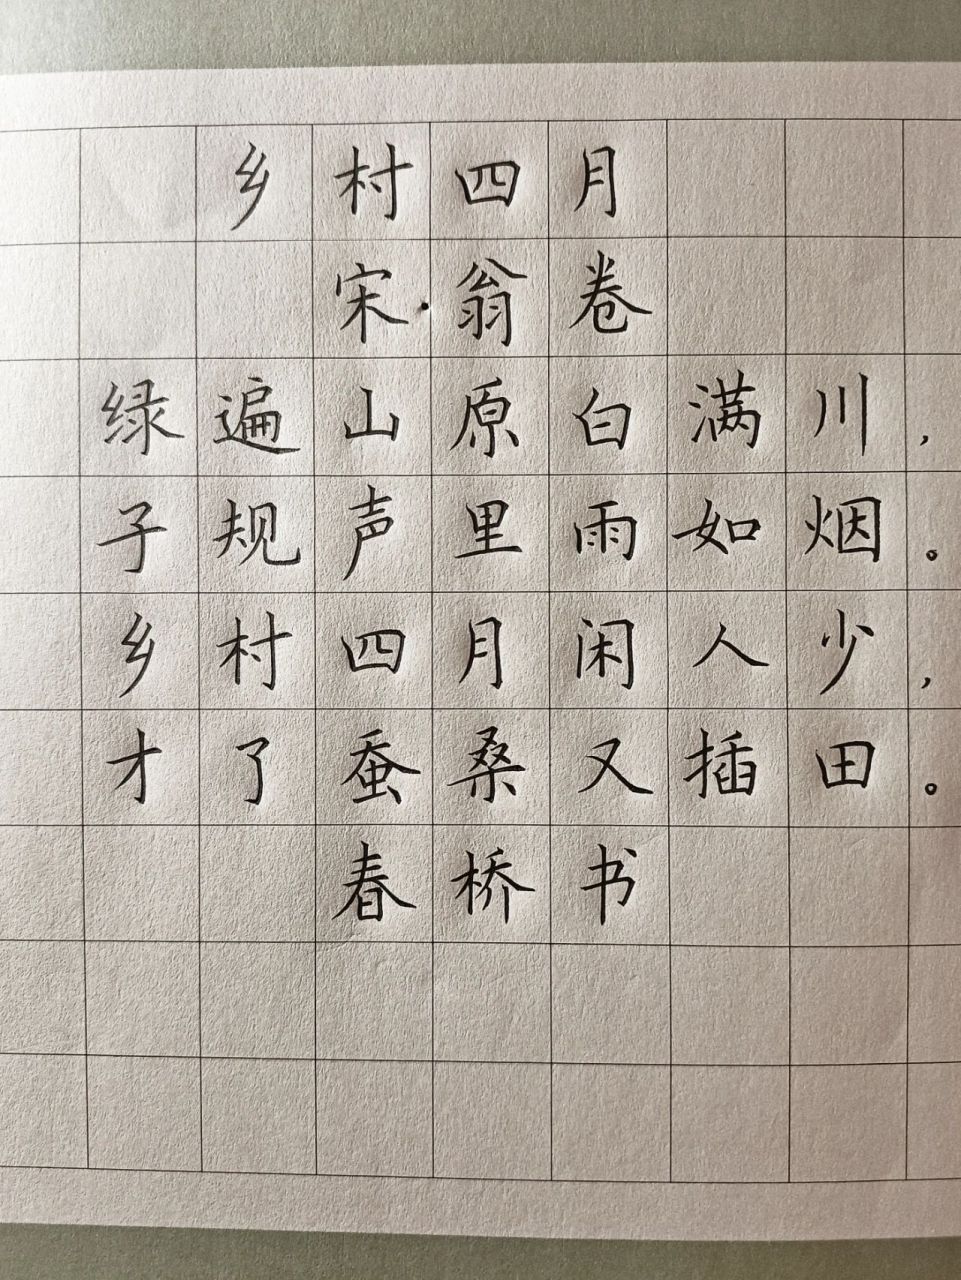 乡村四月
宋·翁卷
绿遍山原白满川，
子规声里雨如烟。
乡村四月闲人少，
才了蚕桑又插田。
春桥书